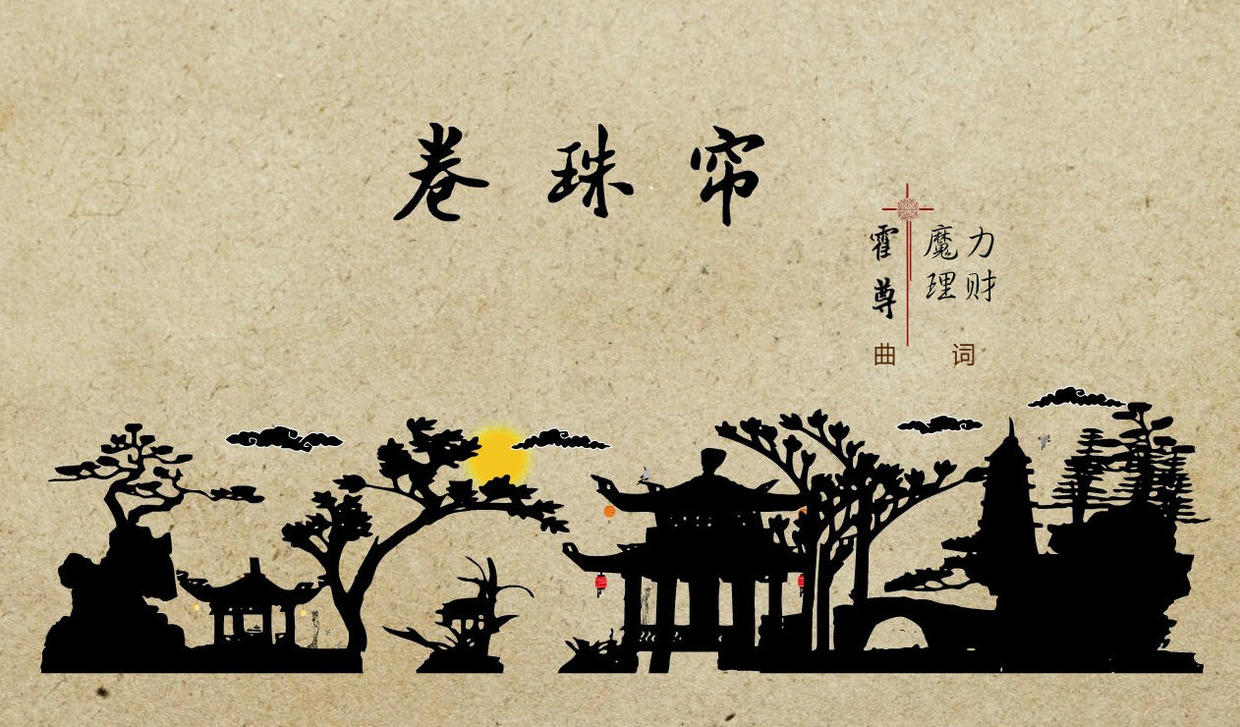 卷珠帘
霍尊
魔理
力财
曲 词